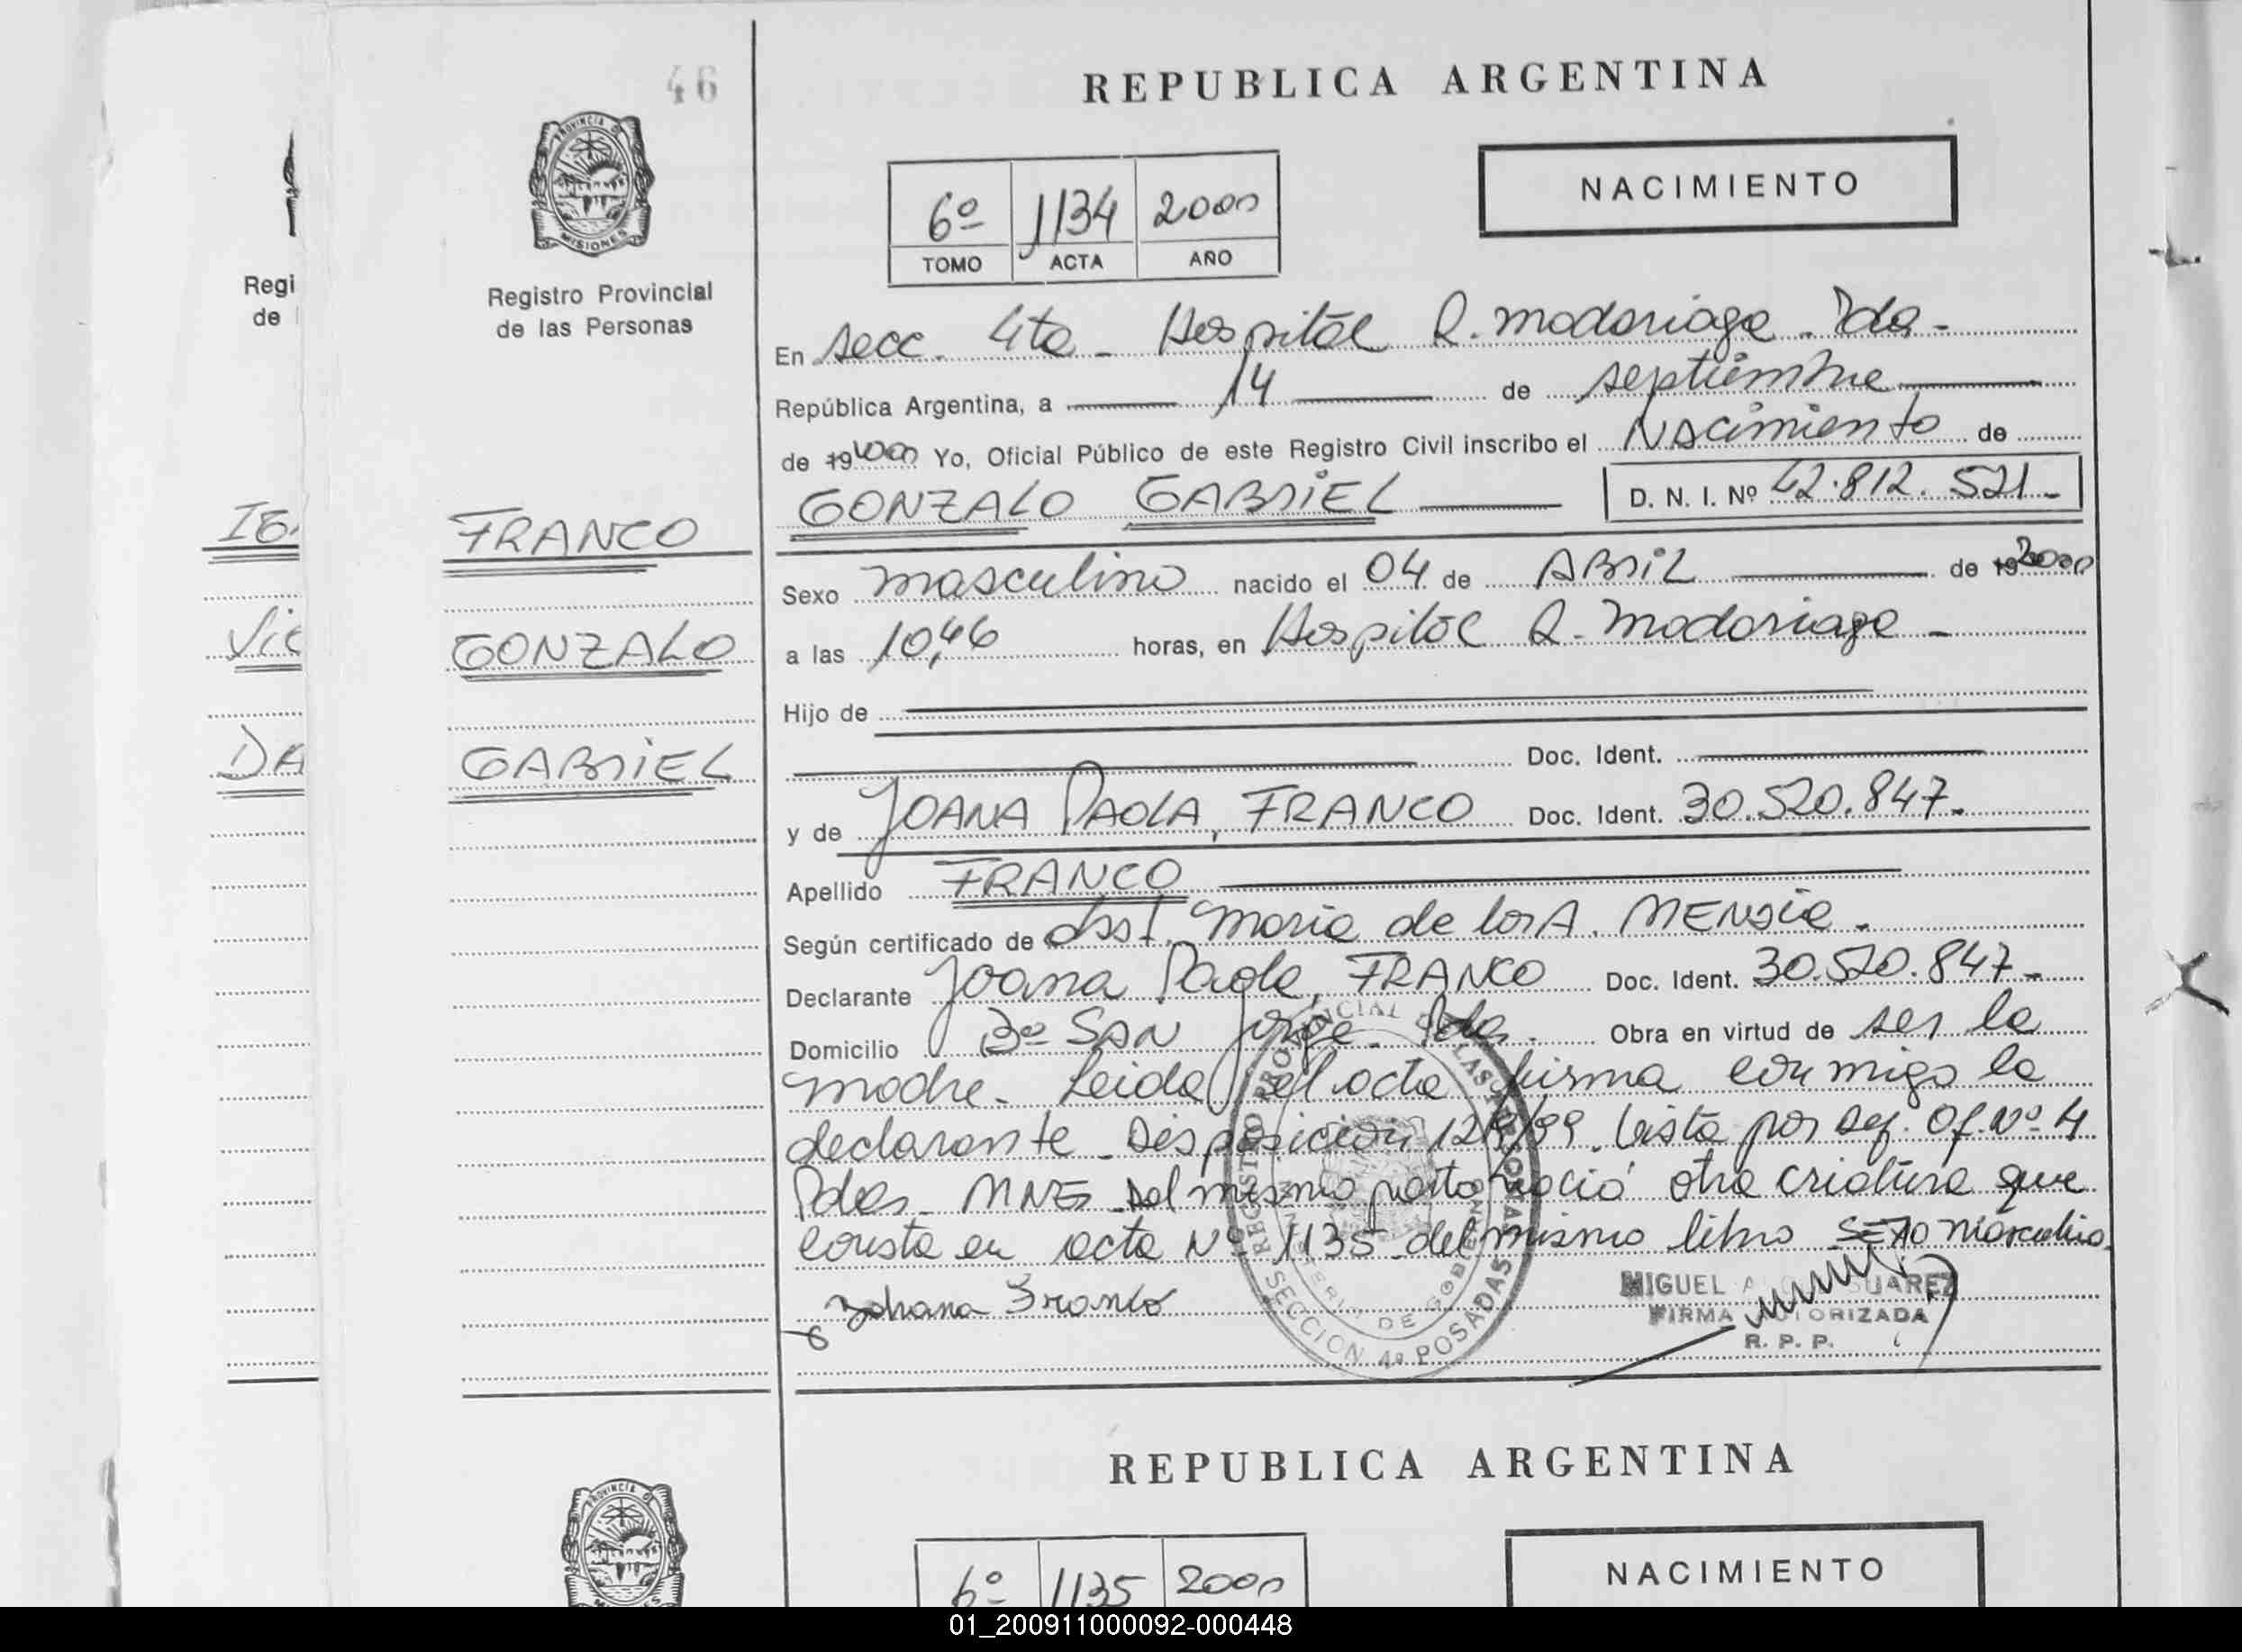 46
REPUBLICA ARGENTINA
PROVINCIA DE
MISIONES
Registro Provincial
de las Personas
6º 1134 2000
TOMO ACTA AÑO
NACIMIENTO
Regi
de
En secc. 4ta - Hospital R. Madariaga. Pdas -
República Argentina, a 14 de septiembre
de 192000 Yo, Oficial Público de este Registro Civil inscribo el Nacimiento de
GONZALO GABRIEL D. N. I. Nº 42.812.521-
FRANCO
GONZALO
GABRIEL
IG
Vic
DA
Sexo masculino nacido el 04 de ABRIL de 192000
a las 10,46 horas, en Hospital R. Madariaga -
Hijo de
Doc. Ident.
y de JOANA PAOLA, FRANCO Doc. Ident. 30.520.847-
Apellido FRANCO
Según certificado de Obst. Maria de los A.
Declarante Joana Paola, FRANCO Doc. Ident. 30.520.847-
Domicilio Bº SAN Jorge - Pdas. Obra en virtud de ser la
madre. Leida el acta firma conmigo la
declarante - Disposicion 129/99. Vista por Del. Of. Nº 4
Pdas. MNES Del mismo parto nació otra criatura que
consta en acta Nº 1135 del mismo libro SEXO Masculino.
Johana Franco
MIGUEL A SUAREZ
FIRMA AUTORIZADA
R. P. P.
REGISTRO PROVINCIAL DE LAS PERSONAS
MINISTERIO DE GOBIERNO
SECCION 4ª POSADAS
REPUBLICA ARGENTINA
PROVINCIA DE
6º 1135 2000
NACIMIENTO
01_200911000092-000448